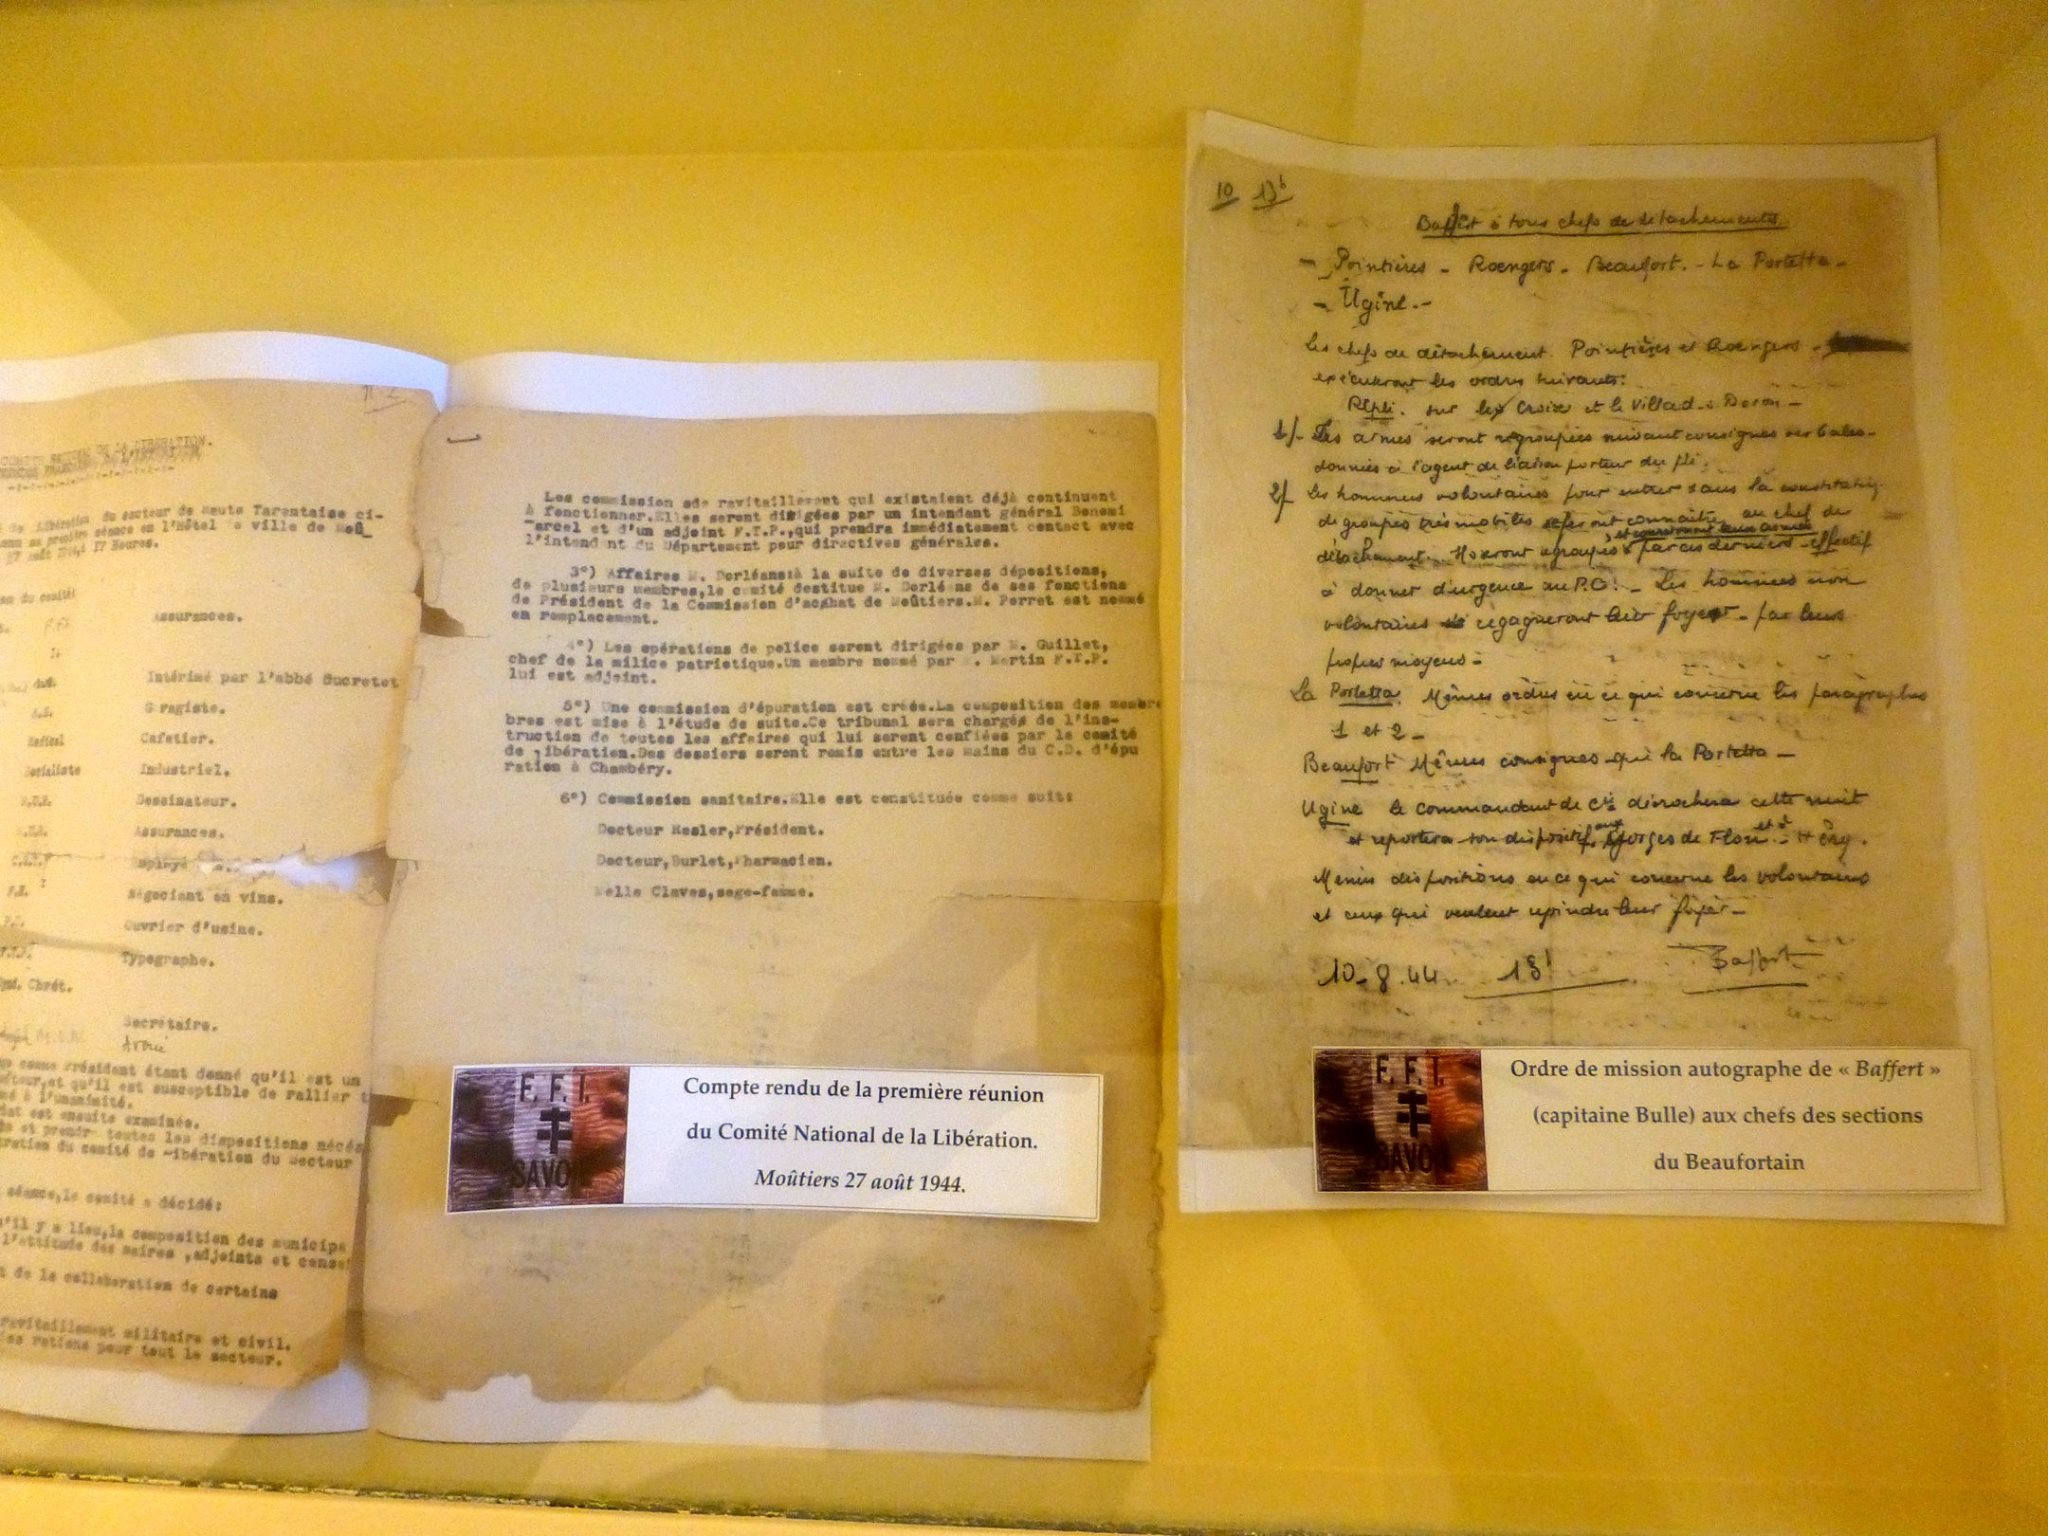 COMITE LA LIBERATION.
de Libération du secteur de Haute Tarentaise ci-
sa première séance en l'Hôtel de ville de Moû_
27 août 1944, à 17 Heures.
du comité
Assurances.
Intérimé par l'abbé Ducretet
G ragiste.
Radical Cafetier.
Socialiste Industriel.
Dessinateur.
Assurances.
Employé
F.N. Négociant en vins.
Ouvrier d'usine.
Typographe.
Chrét.
Secrétaire.
Avoué
comme Président étant donné qu'il est un
et qu'il est susceptible de rallier
à l'unanimité.
est ensuite examinée.
et prendr toutes les dispositions nécés
ration du comité de libération du secteur
séance,le comité a décidé:
qu'il y a lieu,la composition des municipa
l'attitude des maires ,adjoints et conse
t de la collaboration de certains
ravitaillement militaire et civil.
les rations pour tout le secteur.
Les commission sde ravitaillement qui existaient déjà continuent
à fonctionner.Elles seront dirigées par un intendant général Bonomi
-arcel et d'un adjoint F.T.P.,qui prendra immédiatement contact avec
l'intend nt du Département pour directives générales.
3°) Affaires M. Dorléans:à la suite de diverses dépositions,
de plusieurs membres,le comité destitue M. Dorléans de ses fonctions
de Président de la Commission d'achat de Moûtiers.M. Perret est nommé
en remplacement.
4°) Les opérations de police seront dirigées par M. Guillet,
chef de la milice patriotique.Un membre nommé par M. Martin F.T.P.
lui est adjoint.
5°) Une commission d'épuration est créée.La composition des membre
bres est mise à l'étude de suite.Ce tribunal sera chargés de l'ins-
truction de toutes les affaires qui lui seront confiées par le comité
de libération.Des dossiers seront remis entre les mains du C.D. d'épu
ration à Chambéry.
6°) Commission sanitaire.Elle est constituée comme suit:
Docteur Resler,Président.
Docteur,Burlet,Pharmacien.
Melle Claves,sage-femme.
F.F.I.
SAVOIE
Compte rendu de la première réunion
du Comité National de la Libération.
Moûtiers 27 août 1944.
10 13b
Baffert à tous chefs de detachements
- Pointières - Roengers - Beaufort. - La Portetta -
- Ugine. -
Les chefs de détachement Pointières et Roengers -
exécuteront les ordres suivants:
Repli. sur les Croix et le Villard s Doron -
1/- Les armes seront regroupées suivant consignes verbales-
données à l'agent de liaison porteur du pli.
2/ Les hommes volontaires pour entrer dans la constitution
de groupes très mobiles se feront connaître au chef de
et conserveront leurs armes
détachement. Ils seront regroupés par ces derniers - effectif
à donner d'urgence au P.C! - Les hommes non
volontaires regagneront leur foyer - par leurs
propres moyens -
La Portetta Mêmes ordres en ce qui concerne les paragraphes
1 et 2 -
Beaufort Mêmes consignes que la Portetta -
Ugine le commandant de Cie décrochera cette nuit
et reportera son dispositif aux Gorges de Flon et à Héry.
Mêmes dispositions en ce qui concerne les volontaires
et ceux qui veulent rejoindre leur foyer -
10-8.44. 18! Baffert
F.F.I.
SAVOIE
Ordre de mission autographe de « Baffert »
(capitaine Bulle) aux chefs des sections
du Beaufortain